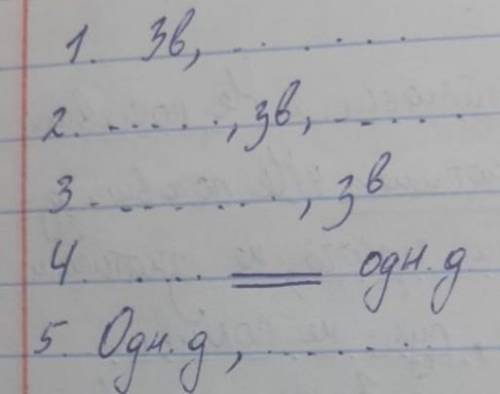 1. Зв, . . . . . .
2. . . . . . ., зв, . . . . . .
3. . . . . . . . ., зв
4. . . . . ═══ одн. д
5. Одн. д, . . . . . .